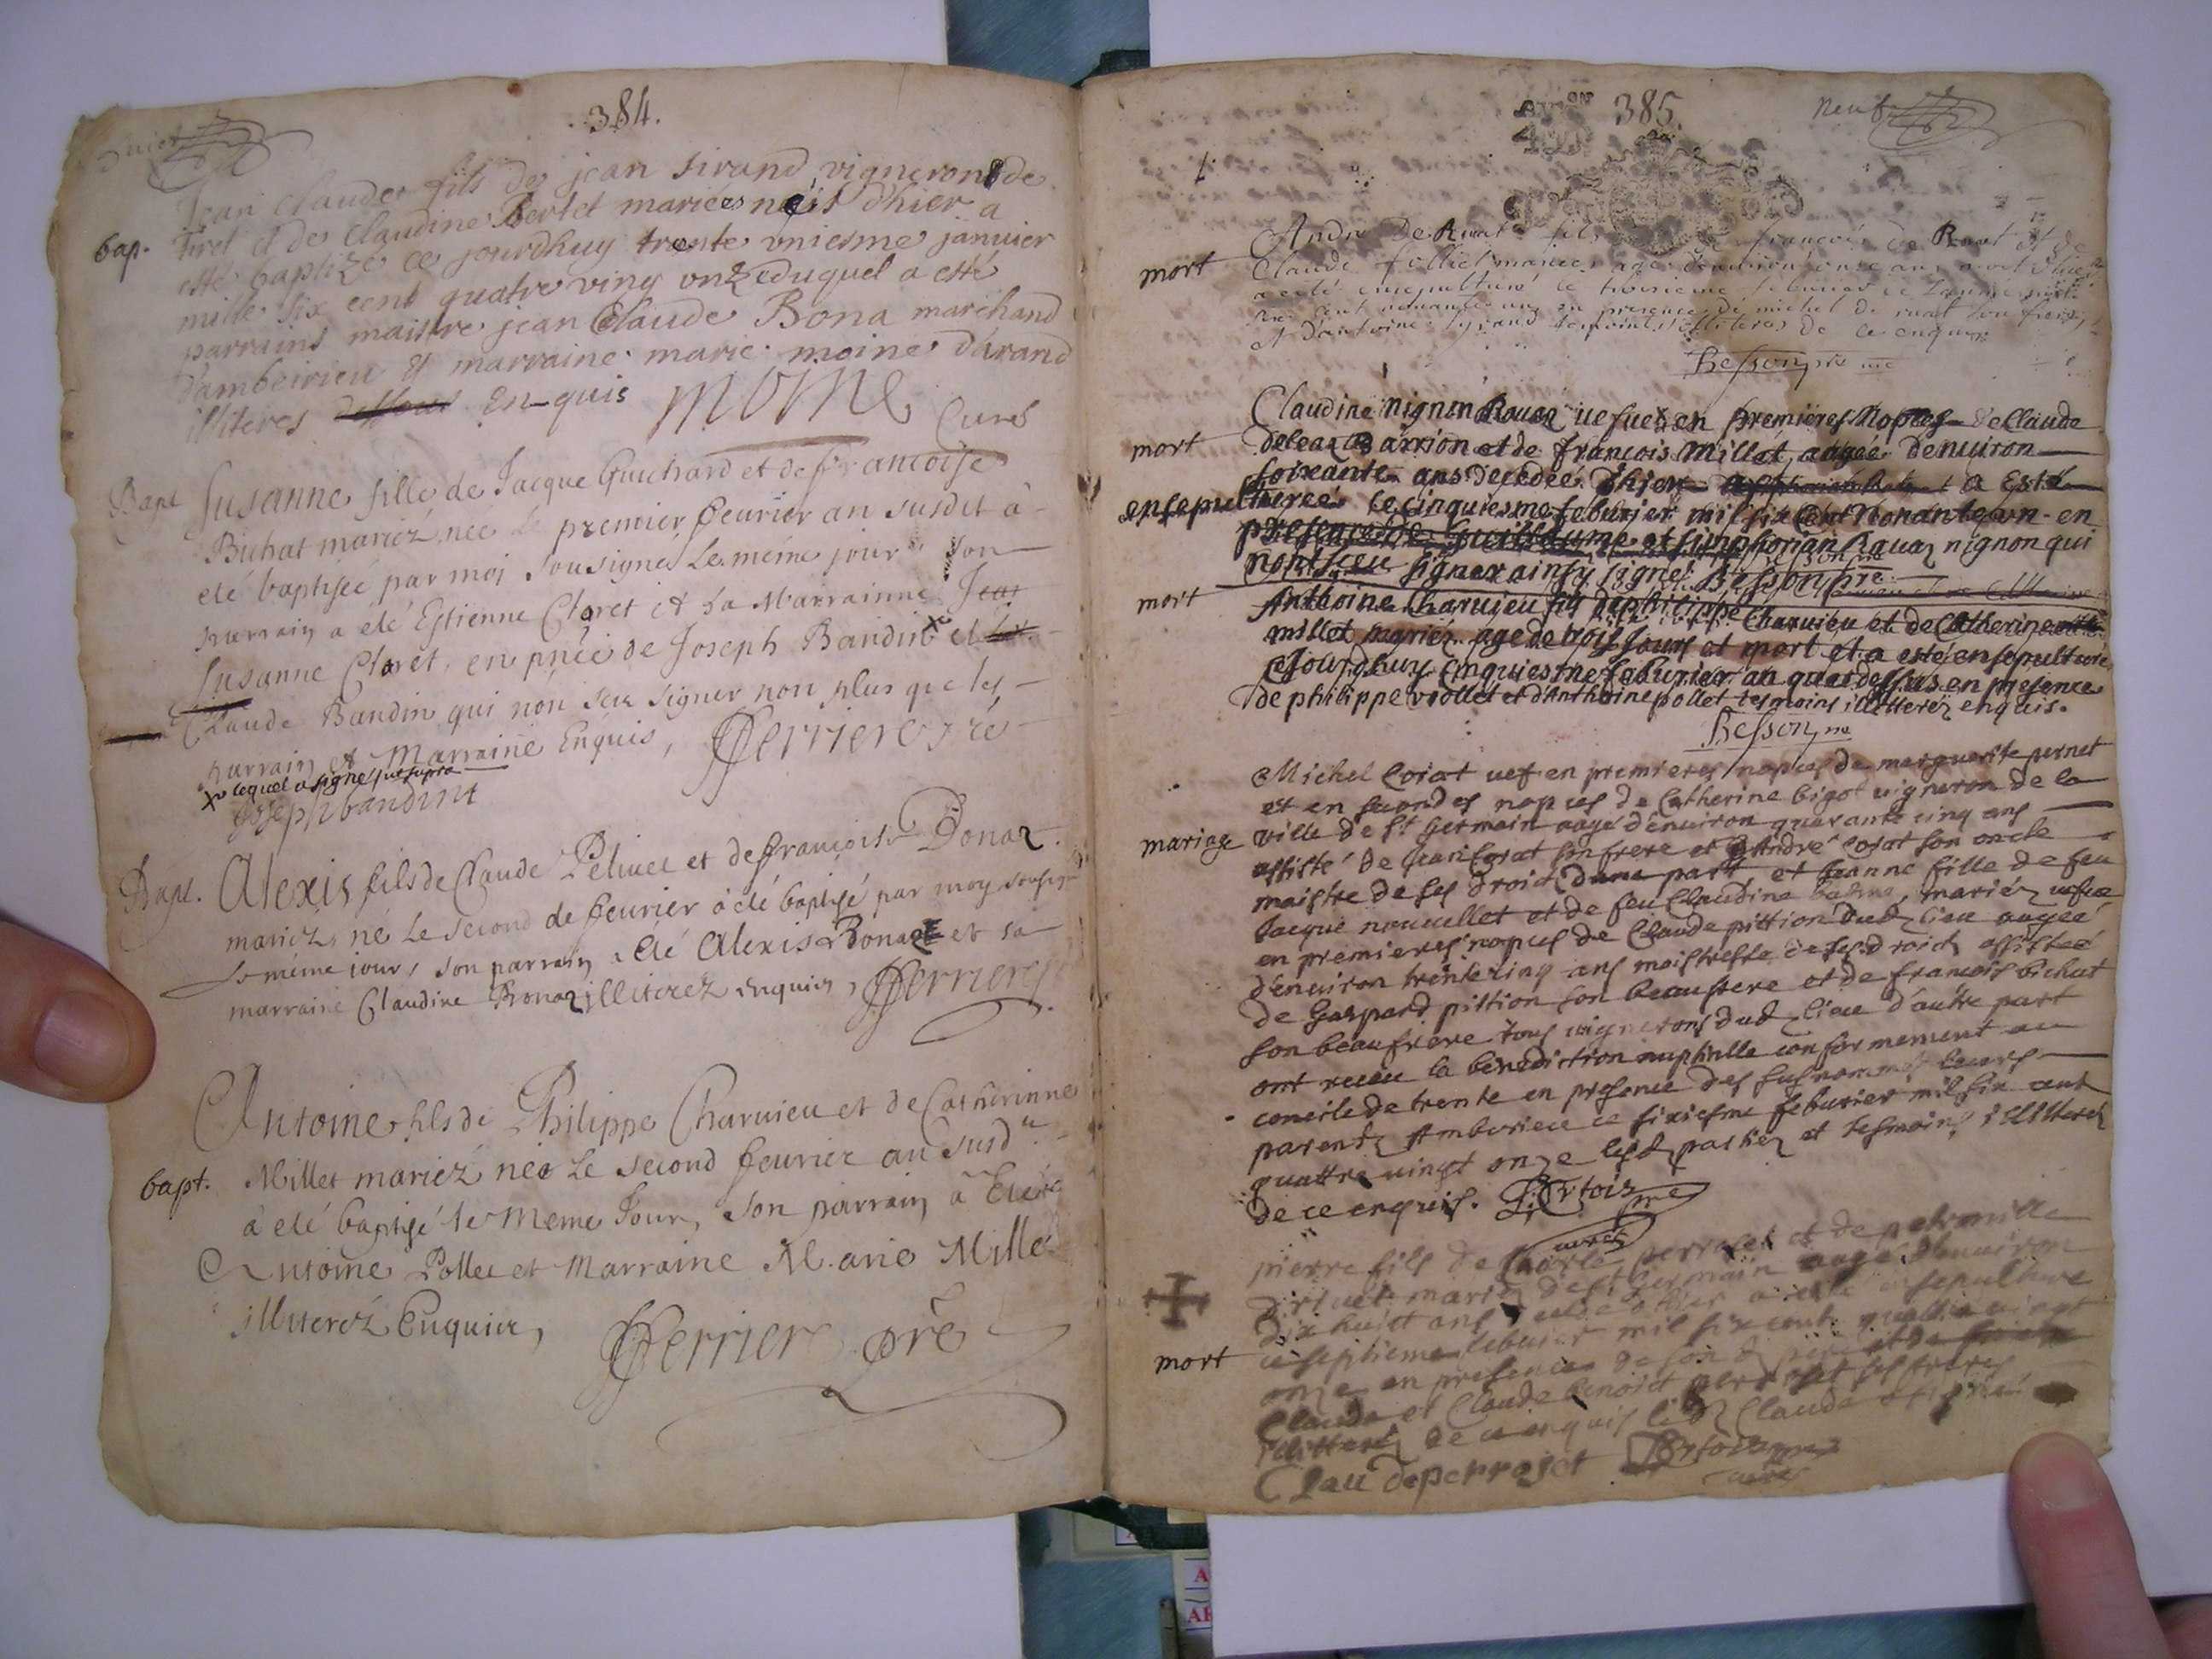 384.
Jean Claude fils de jean sirand vigneron de
bap. tiret et de Claudine Bertet mariés né d'hier a
esté baptizé ce jourdhuy trente uniesme janvier
mille six cent quatre ving onze duquel a esté
parrains maistre jean Claude Bona marchand
d'ambeirieu et marraine marie moine d'arand
illiteres enquis mome
Curé
Bapt Susanne fille de Jacque Guichard et de francoise
Bichat mariéz née le premier feurier an susdit à
eté baptisée par moi sousigné le même jour son
parrain a été Estienne Claret et sa Marrainne
Susanne Claret, en pñce de Joseph Bandin x et
Claude Bandin qui non sceu signer non plus que les
parrain et Marraine Enquis, Ferriere pre
x lequel a signé
joseph bandint
Bapt. Alexis fils de Claude Peliuet et de francoise Bonaz
mariéz, né le second de feurier à eté baptisé par moy sousigné
le même jour, son parrain a été Alexis Bonaz et sa
marraine Claudine Bonaz illiterez enquis, Ferriere
Antoine fils de Philippe Charuieu et de Catherinne
bapt. Millet mariéz né le second feurier an susd
à eté baptisé le Meme Jour, son parrain à été
Antoine Pollet et Marraine Marie Millet
illiteréz Enquis,
Ferriere pre
385.
neuf
mort
Andre de Ruat fils francois de Ruat et de
Claude folliet mariés agé d'enuiron onze ans mort
a esté ensepulturé le troisieme feburier
cent nonante un en presence de michel de ruat son frere
et d'antoine sirand temoins illiteres de ce enquis
Besson pre
mort
Claudine nignon Rauaz uefue en premieres Nopces de Claude
Barrion et de francois Millet, aagée denuiron
soixante ans decedée d'hier a Esté
ensepulturée le cinquiesme feburier mil six Cent Nonante un en
presence de Guillaume et simphorian Rauaz nignon qui
nont sceu signer ainsy signé Besson pre
mort Anthoine Charuieu fils de philippe Charuieu et de Catherine
millet mariéz age de trois Jours et mort et a esté ensepulturé
Cejourdhuy Cinquiesme feburier an que dessus en presence
de philippe viollet et d'Anthoine pollet tesmoins illitterez enquis.
Besson
mariage
Michel Corat uef en premieres nopces de marguerite pernet
et en secondes nopces de Catherine bigot vigneron de la
ville de St Germain aagé d'enuiron quarante cinq ans
assisté de Jean Corat son frere et d'André Corat son oncle
maistre de ses droits d'une part, et Jeanne fille de feu
Jacque nouuellet et de feu Claudine mariéz uefue
en premieres nopces de Claude pittion dud lieu aagée
d'enuiron trente cinq ans maistresse de ses droits assistée
de Gaspard pittion son beaufrere et de francois bichat
son beaufrere tous vignerons dud lieu d'autre part
ont receu la benediction nuptialle conformement au
concile de trente en presence des susnommés leurs
parents Amburieu ce sixiesme feburier mil six cent
quattre vingt onze lesd parties et tesmoins illitterez
de ce enquis.
curé
pierre fils de Charle perroset et de petronille
mariéz de st Germain aagé d'enuiron
dix huit ans a esté ensepulturé
mort ce septieme feburier mil six cent quattre vingt
onze en presence de son d pere
Claude et Claude benoist perroset ses freres
illitterez de ce enquis led Claude a signé
Clau deperroset
curé